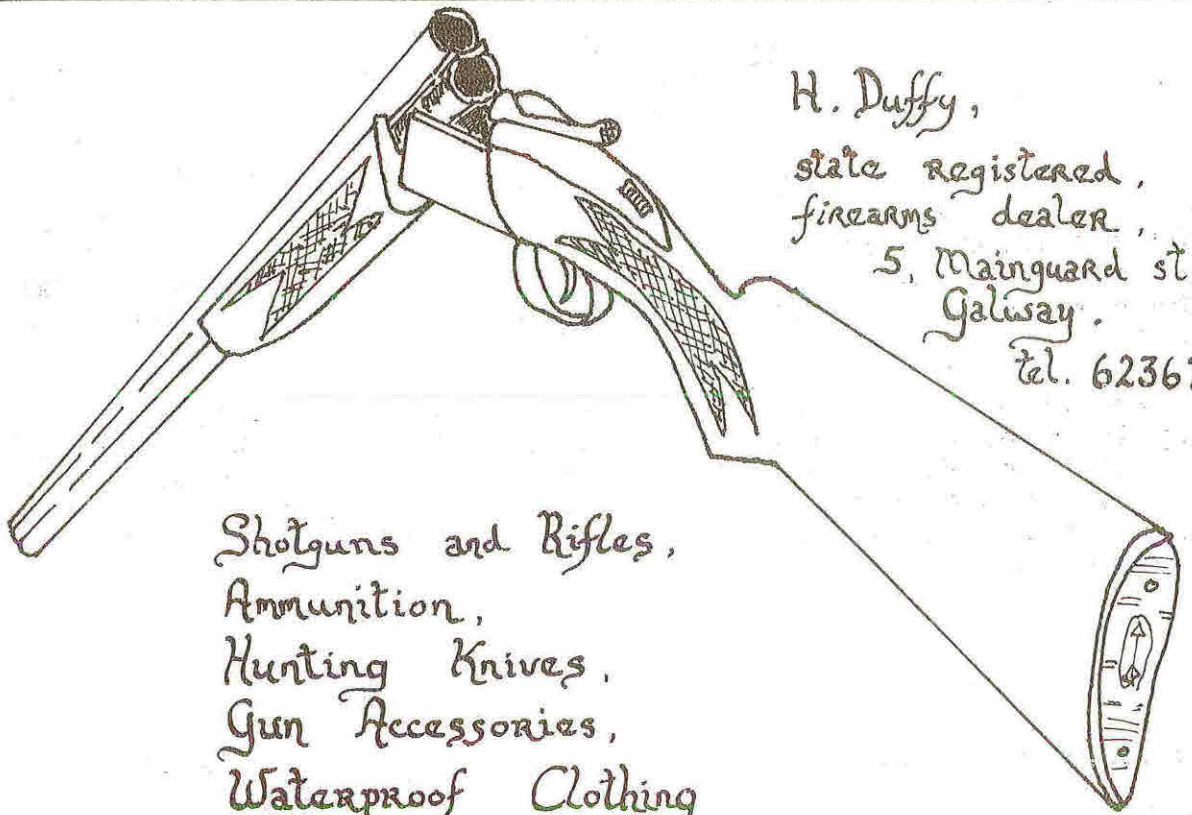 H. Duffy,
state registered,
firearms dealer,
5, Mainguard st
Galway.
tel. 6236
Shotguns and Rifles,
Ammunition,
Hunting Knives,
Gun Accessories,
Waterproof Clothing